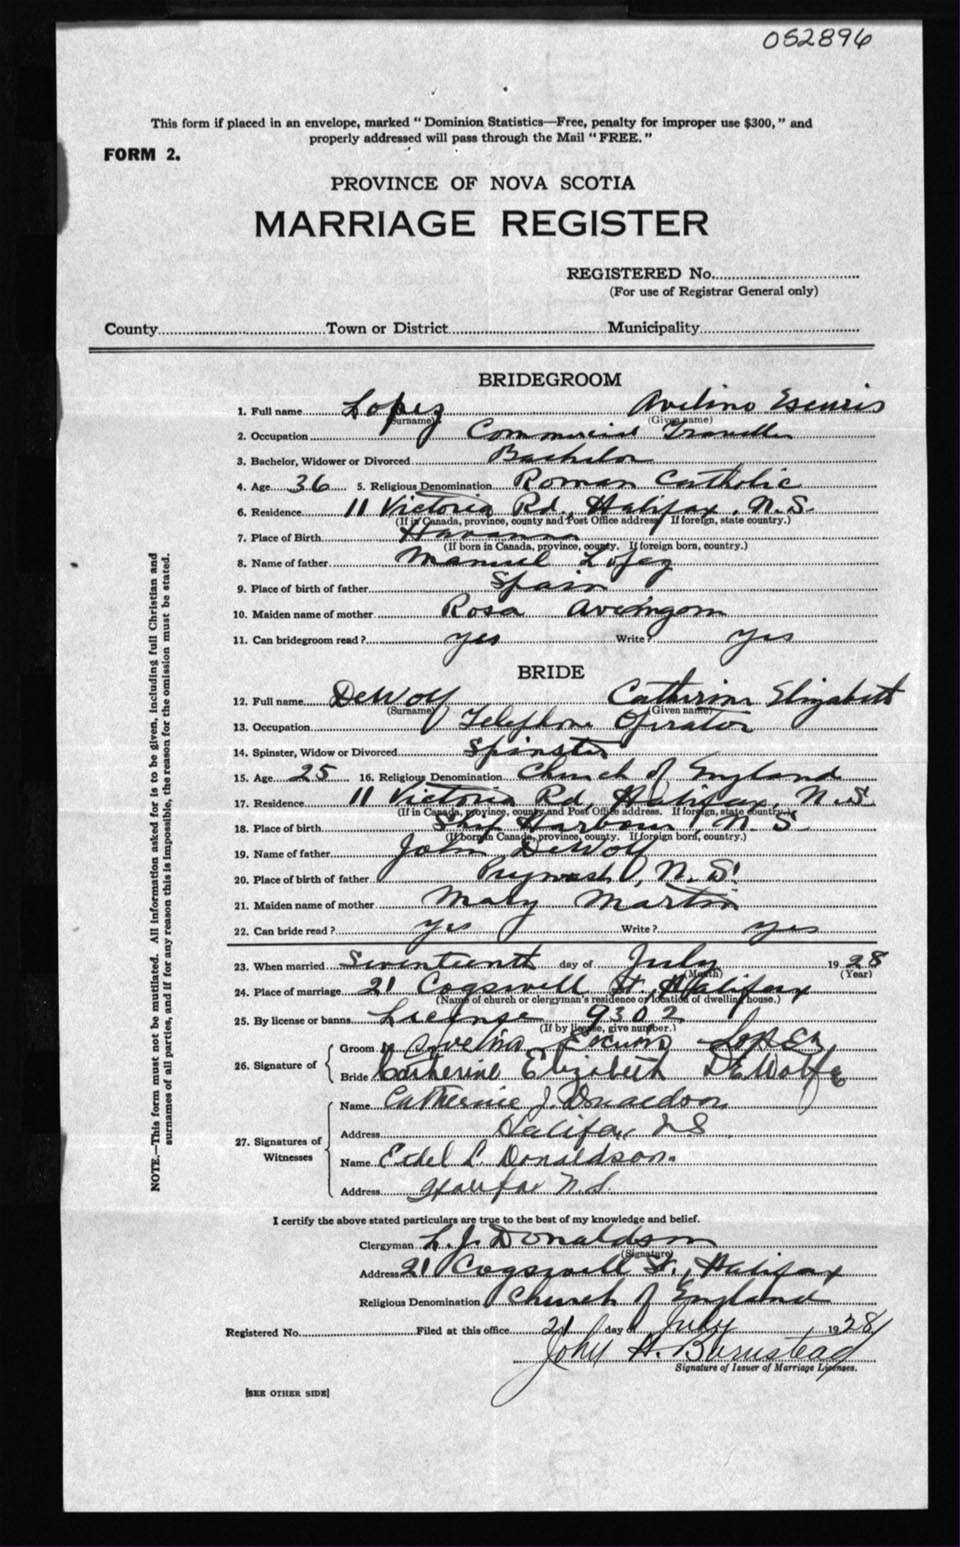 052896
This form if placed in an envelope, marked "Dominion Statistics—Free, penalty for improper use $300," and
properly addressed will pass through the Mail "FREE."
FORM 2.
PROVINCE OF NOVA SCOTIA
MARRIAGE REGISTER
REGISTERED No.
(For use of Registrar General only)
County Town or District Municipality
BRIDEGROOM
1. Full name Lopez Avelino
(Surname) (Given name)
2. Occupation Commercial Traveller
3. Bachelor, Widower or Divorced Bachelor
4. Age 36 5. Religious Denomination Roman Catholic
6. Residence 11 Victoria Rd, Halifax, N.S.
(If in Canada, province, county and Post Office address. If foreign, state country.)
7. Place of Birth Havanna
(If born in Canada, province, county. If foreign born, country.)
8. Name of father Manuel Lopez
9. Place of birth of father Spain
10. Maiden name of mother Rosa
11. Can bridegroom read? yes Write? yes
BRIDE
12. Full name DeWolf Catherine Elizabeth
(Surname) (Given name)
13. Occupation Telephone Operator
14. Spinster, Widow or Divorced Spinster
15. Age 25 16. Religious Denomination Church of England
17. Residence 11 Victoria Rd, Halifax, N.S.
(If in Canada, province, county and Post Office address. If foreign, state country.)
18. Place of birth Ship Harbour, N.S.
(If born in Canada, province, county. If foreign born, country.)
19. Name of father John DeWolf
20. Place of birth of father N.S.
21. Maiden name of mother Mary Martin
22. Can bride read? yes Write? yes
23. When married Seventeenth day of July 1928
(Month) (Year)
24. Place of marriage 21 Cogswell St, Halifax
(Name of church or clergyman's residence or location of dwelling house.)
25. By license or banns License 9302
(If by license, give number.)
26. Signature of
Groom Lopez
Bride Catherine Elizabeth DeWolfe
27. Signatures of Witnesses
Name Catherine J. Donaldson
Address Halifax N.S.
Name L. Donaldson
Address Halifax N.S.
I certify the above stated particulars are true to the best of my knowledge and belief.
Clergyman L. J. Donaldson
(Signature)
Address 21 Cogswell St., Halifax
Religious Denomination Church of England
Registered No. Filed at this office 21 day of July 1928
John H. Barnstead
Signature of Issuer of Marriage Licenses.
[SEE OTHER SIDE]
NOTE.—This form must not be mutilated. All information asked for is to be given, including full Christian and
surnames of all parties, and if for any reason this is impossible, the reason for the omission must be stated.